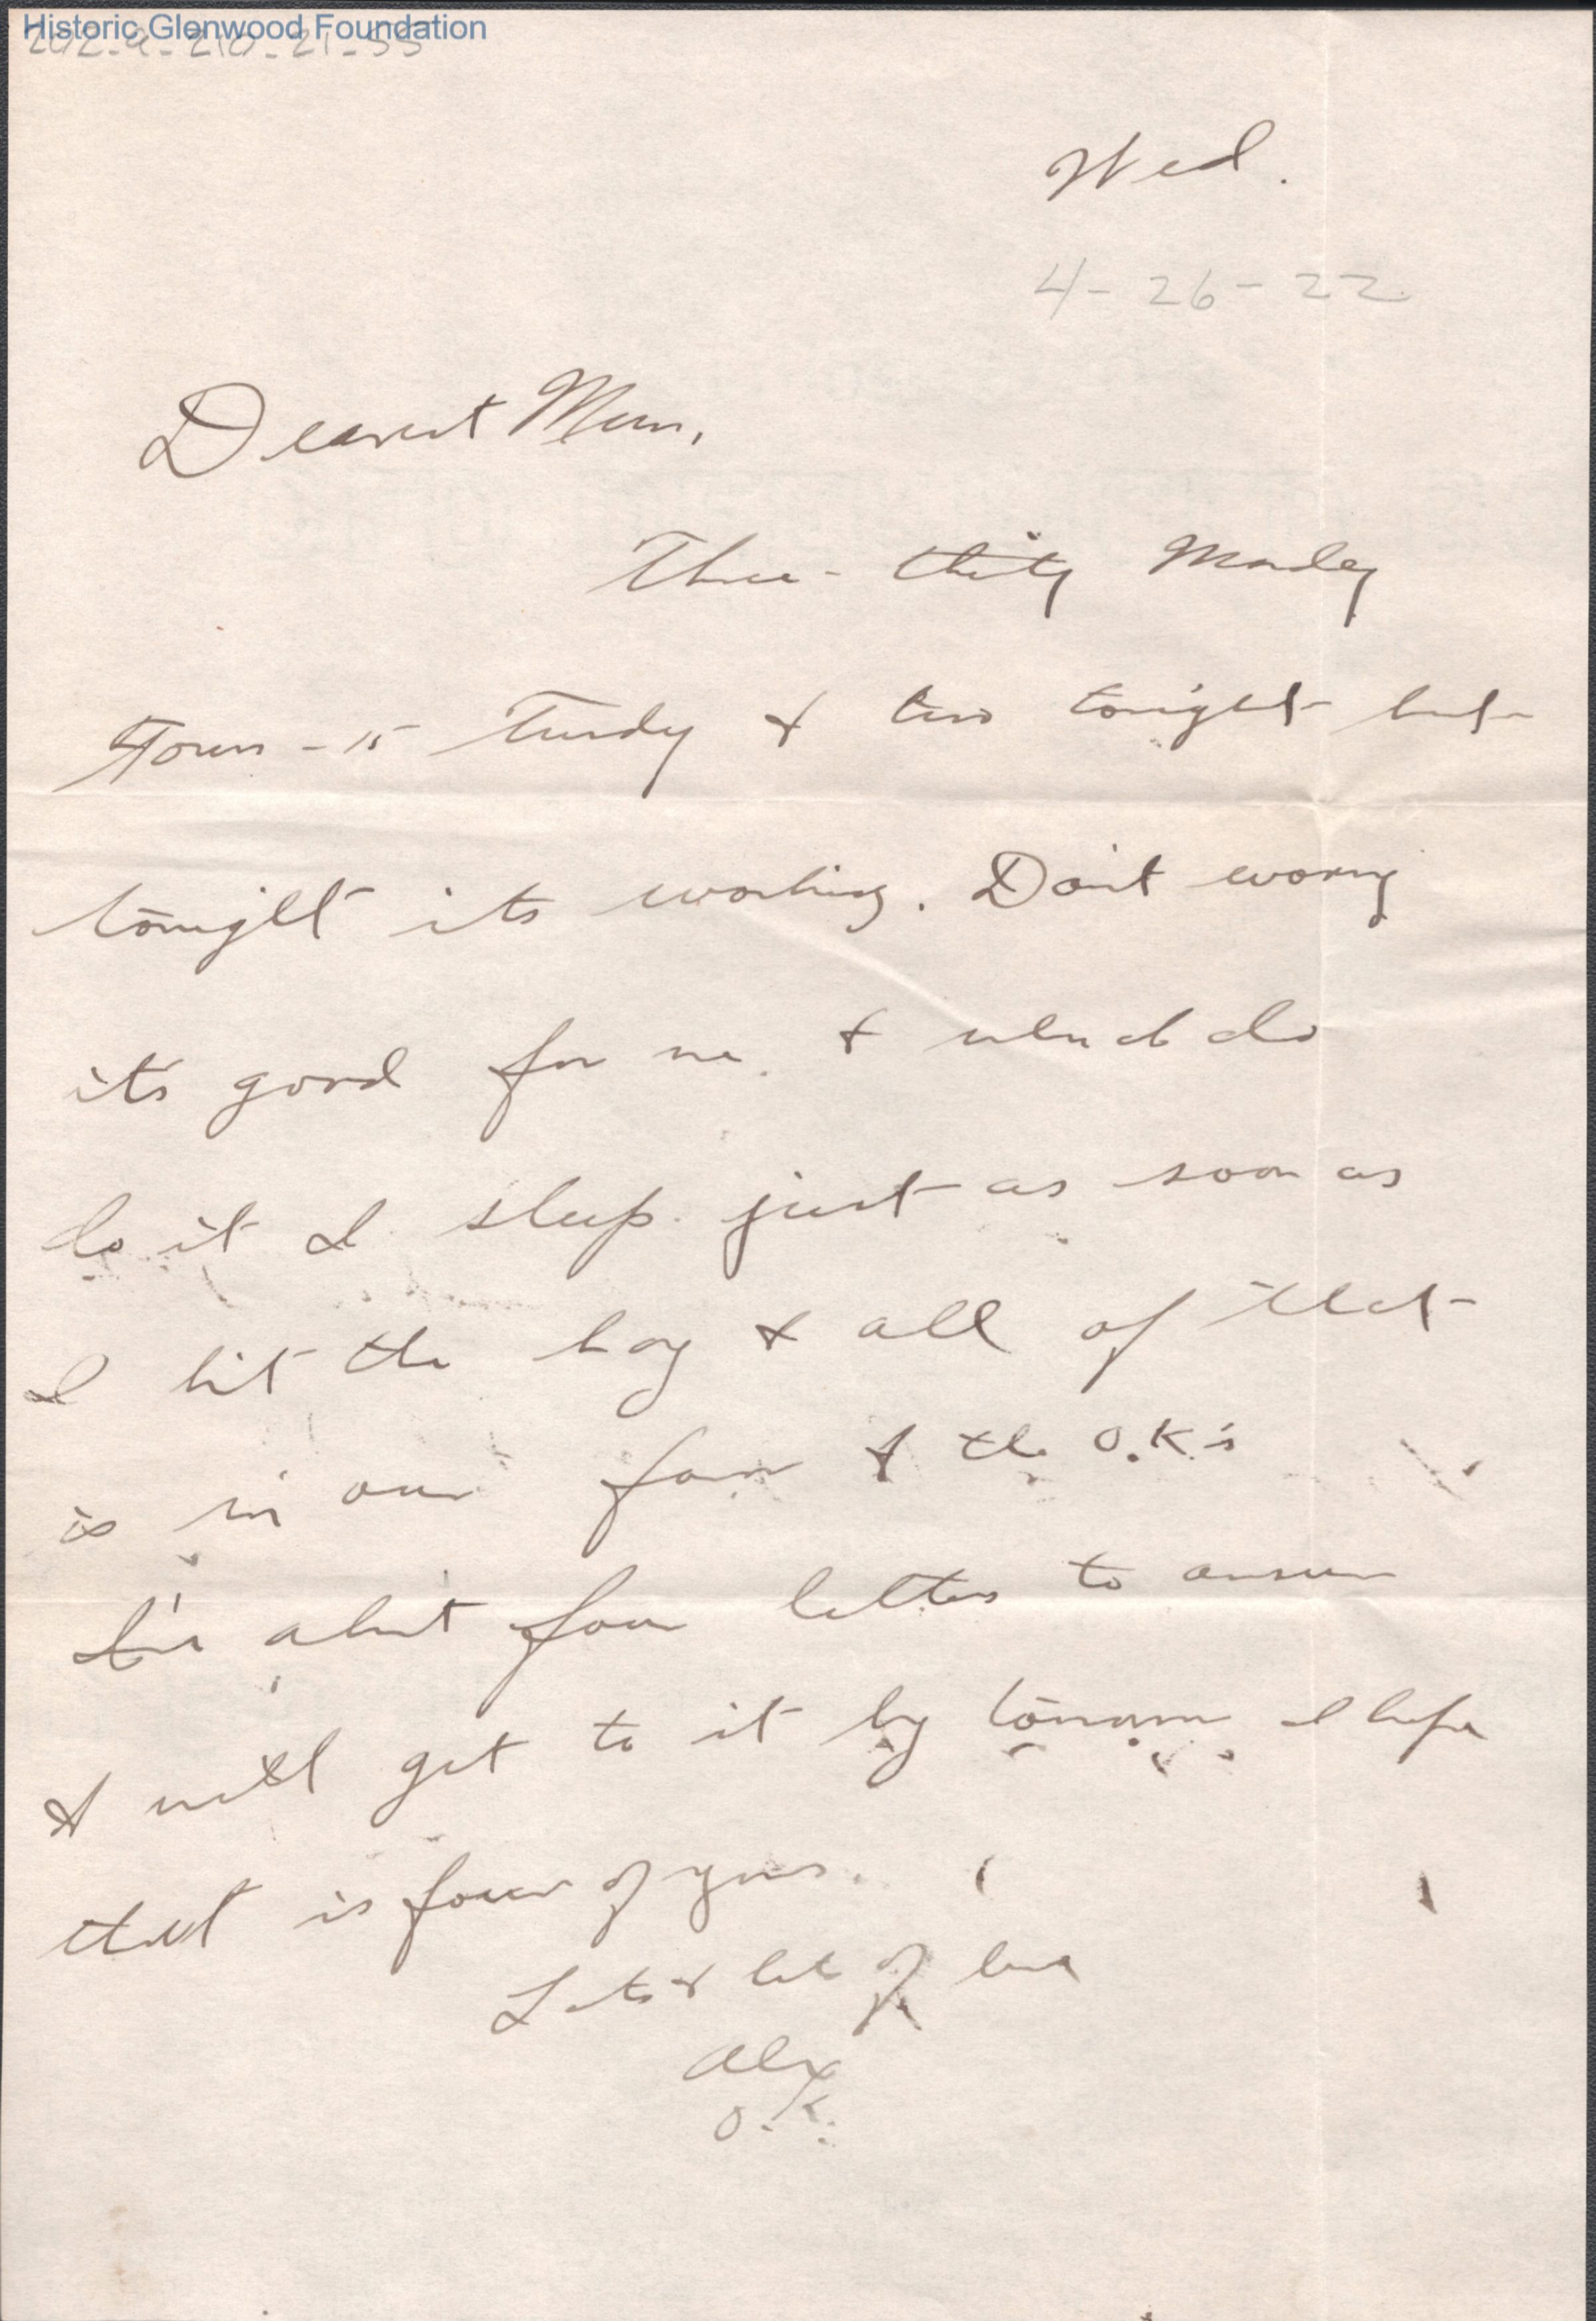 Historic Glenwood Foundation
202-9-210-21-55
Wed.
4-26-22
Dearest Mum,
Three-thirty Monday
Four-15 Tuesday & two tonight but
tonight its working. Don't worry
it's good for me. & when I do
do it I sleep just as soon as
I hit the hay & all of that
is in our favor & the O.K.'s
about four letters to answer
& will get to it by tomorrow I hope
that is four of yours.
Lots & lots of love
Alex
O.K.